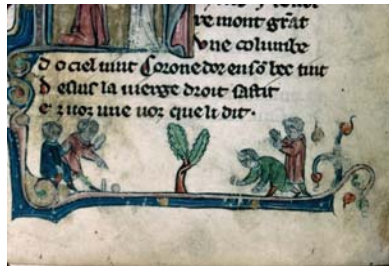 re mont grāt
vne columbe
d o ciel vint Corone dor en sō bec tint
D esus la vierge droit sassit
e z uoz une uoz que li dit.